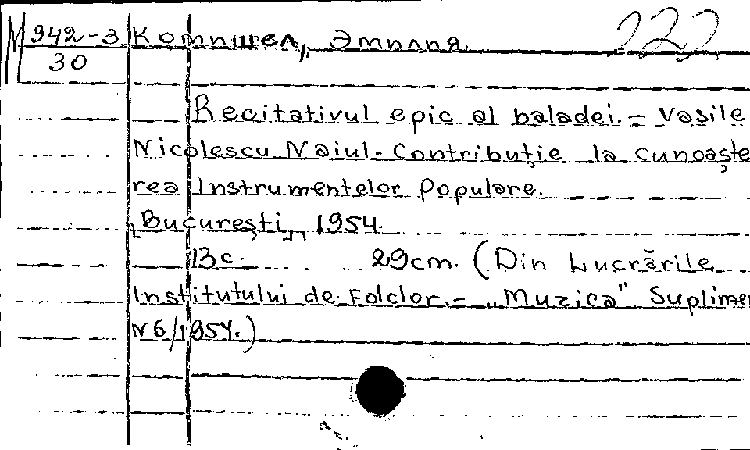 М 942-3 Комишел, Эмилия 222
30
Recitativul epic al baladei. - Vasile
Nicolescu Naiul - Contribuție la cunoaște
rea Instrumentelor Populare.
"București", 1954
13 c. 29 cm. (Din Lucrările
Institutului de Folclor. - „Muzica" Suplimen
N 6/1954.)